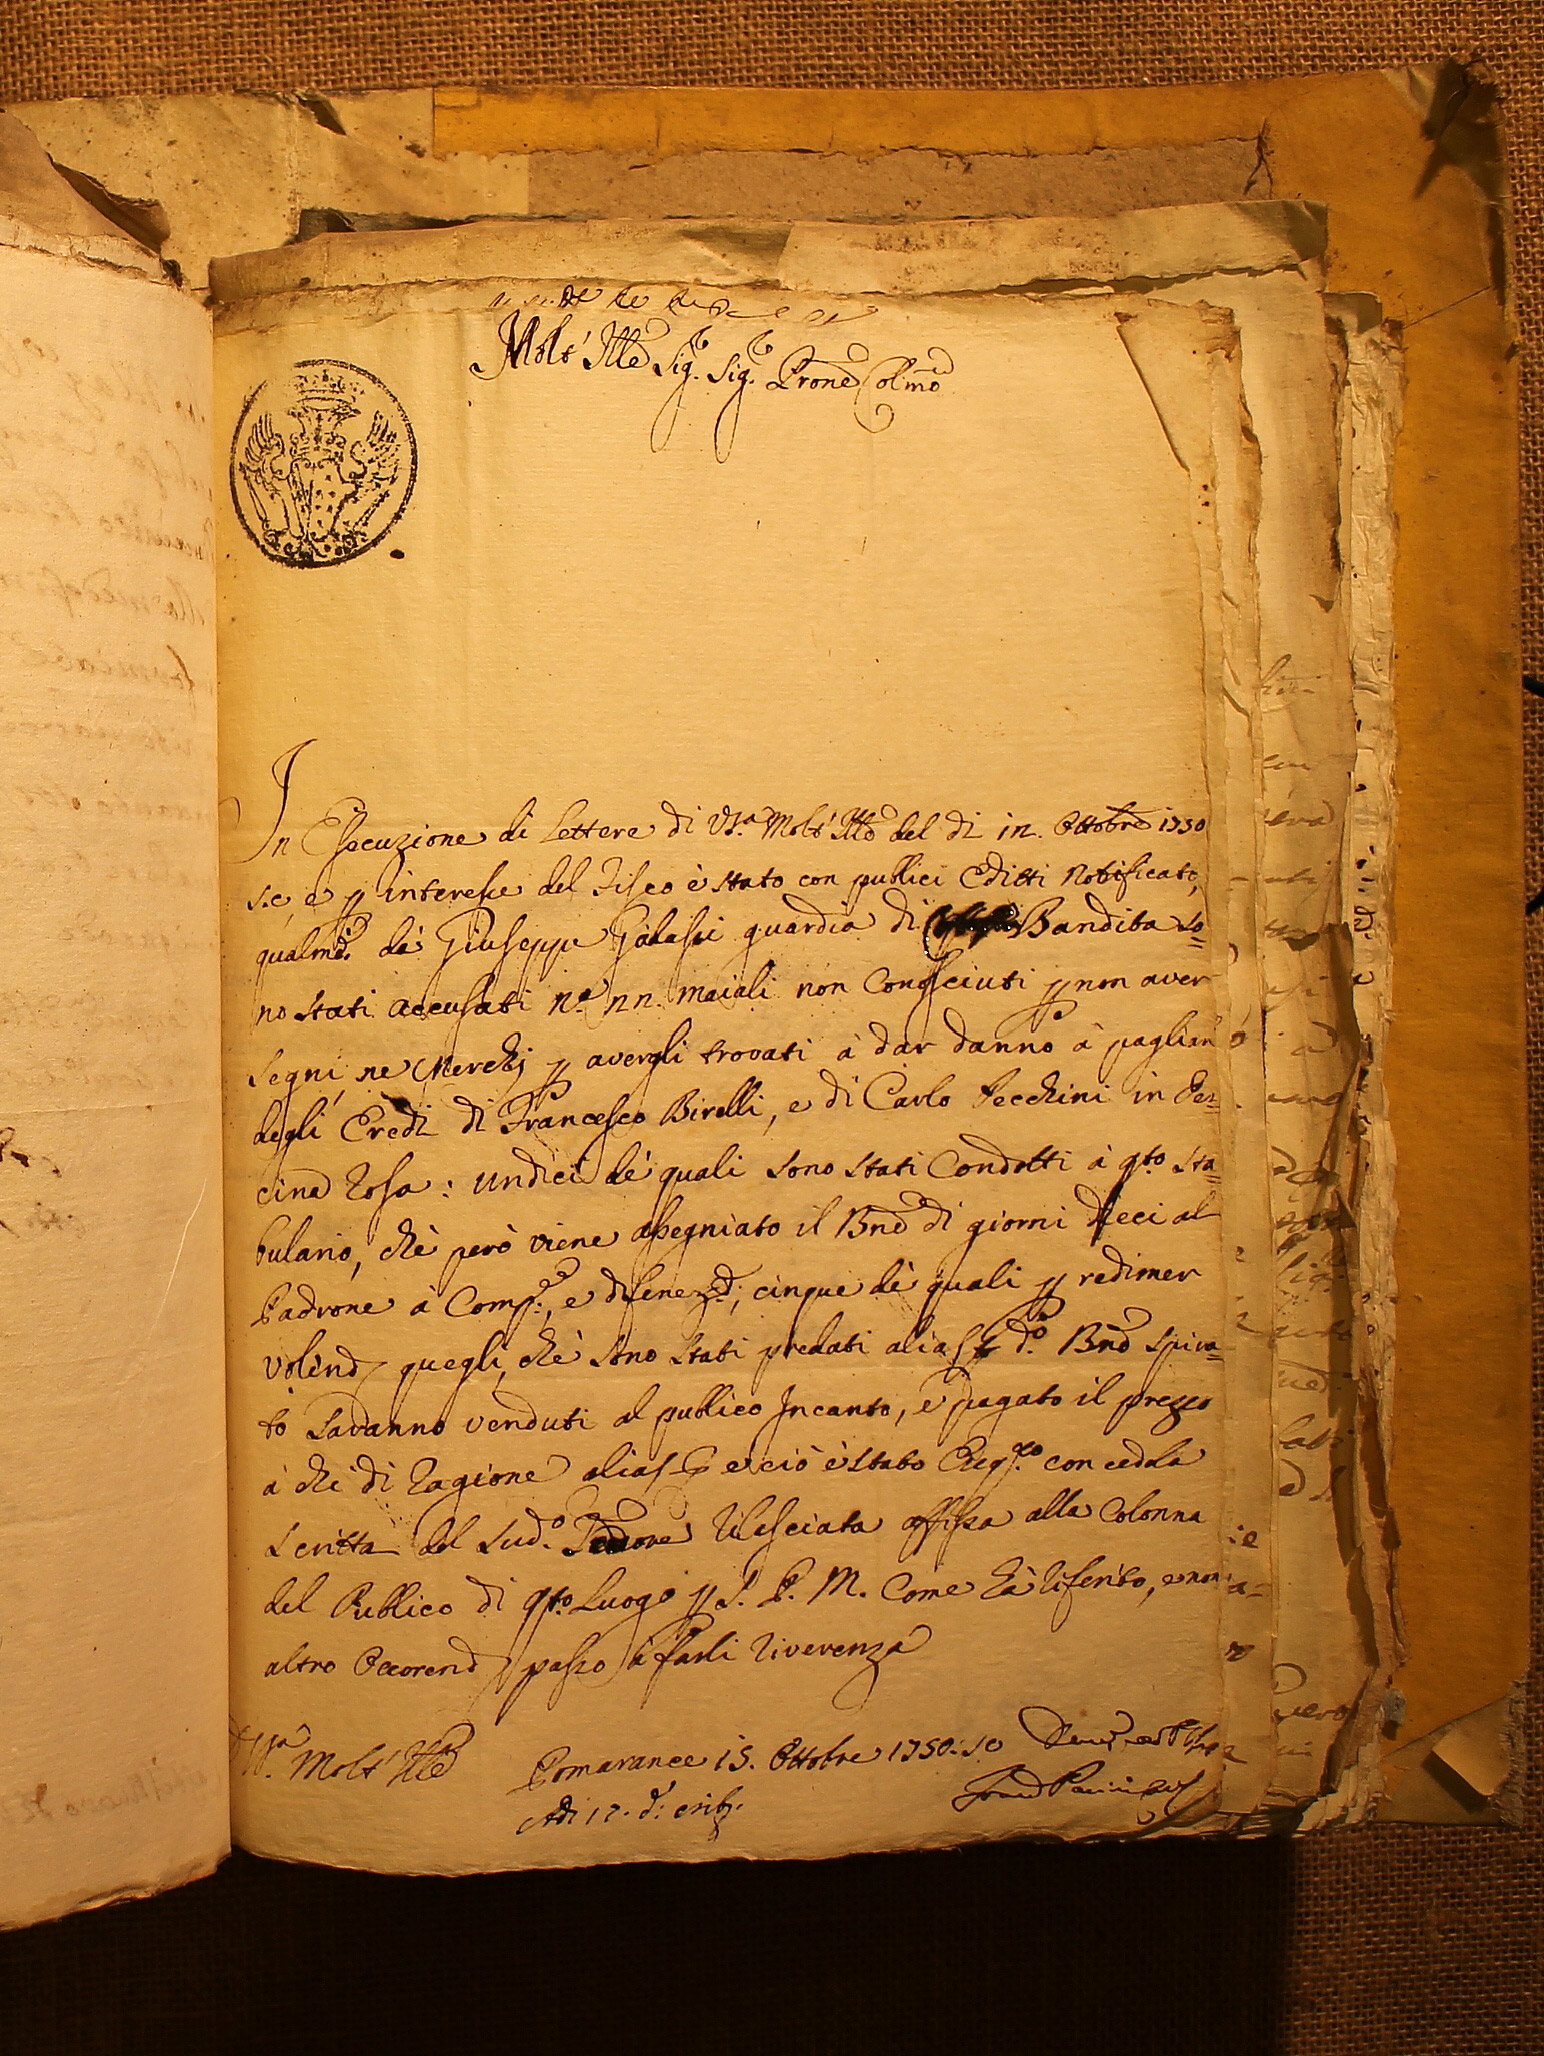 Molt' Ill.e Sig.re Sig.re Prone Colmo
In Essecuzione di Lettere di VS.a Molt' Ill.e del di 12. Ottobre 1750
s.c, e p interesse del Fisco è stato con publici Editti Notificato,
qualmte da Giuseppe Galassi guardia di Bandita so=
no stati accusati n.o 22. maiali non Conosciuti p non aver
segni, ne Merchj p avergli trovati à dar danno à
degli Eredi di Francesco Birelli, e di Carlo Pecchini in
cina Rosa: undici de quali sono stati Condotti à qto Sta=
bulario, che però viene assegniato il Bne di giorni dieci al
Padrone à Comp:, e cinque de quali p redimer
volend quegli, che sono stati predati alias d.o Bne spira=
to saranno venduti al publico Incanto, e pagato il prezzo
à chi di Ragione alias e ciò è stato con cedola
scritta del Sud.o Rilasciata affissa alla Colonna
del Publico di qto Luogo p S. P. M. Come hà riferito, e non
altro Occorend passo à farli riverenza
Di VS.a Molt' Ill.e Pomarance 15. Ottobre 1750. s.c
Adi 17. d: